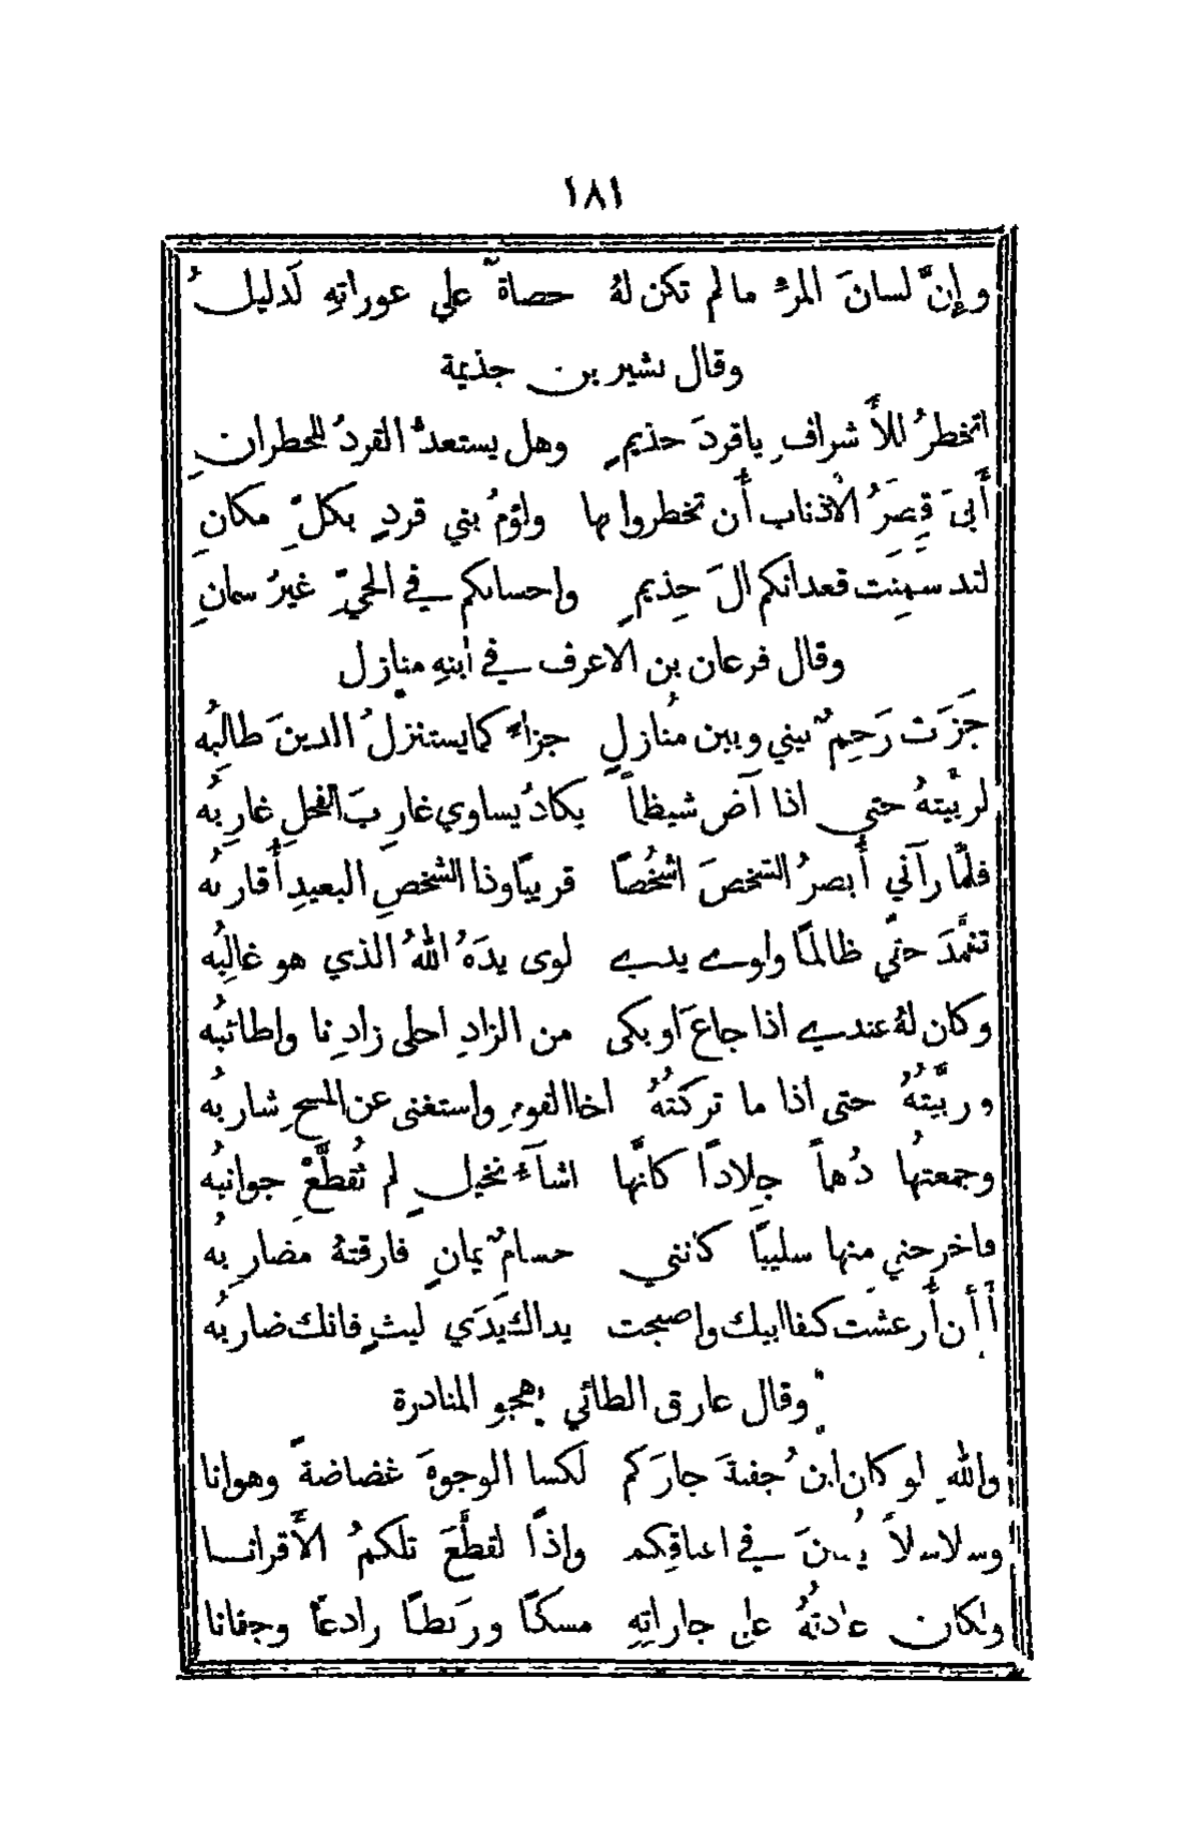 ١٨١
وإنَّ لسانَ المرءِ ما لم تكن لهُ حصاةٌ على عوراتهِ لَدليلُ
وقال بشير بن جذيمة
اتخطرُ للأَشرافِ ياقردَ حذيمٍ وهل يستعدُّ القردُ للخطرانِ
أَبَى قِصَرُ الأَذناب أَن تخطروا بها ولؤمُ بني قردٍ بكلِّ مكانِ
لقد سمِنَت قعدانكم الَ حِذيمٍ واحسابكم في الحيِّ غيرُ سمانِ
وقال فرعان بن الاعرف في ابنهِ منازل
جَزَت رَحِمٌ بيني وبين مُنازلٍ جزاءً كما يستنزلُ الدينَ طالبُه
لربَّيتهُ حتى اذا آض شيظماً يكادُ يساوي غاربَ الفحلِ غاربُه
فلمَّا رآني أَبصرُ الشخصَ اشخُصًا قريبًا وذا الشخصِ البعيدِ أُقاربُه
تغمَّدَ حقّي ظالمًا ولوى يدي لوى يدَهُ اللهُ الذي هو غالبُه
وكان لهُ عندي اذا جاعَ أَو بكى من الزادِ احلى زادِنا واطائبُه
وربَّيتُهُ حتى اذا ما تركتُهُ اخا القومِ واستغنى عن المسحِ شاربُه
وجمعتُها دُهماً جِلادًا كانَّها اشآءُ نخيلٍ لم تُقطَّعْ جوانبُه
فاخرجني منها سليبًا كانني حسامٌ يمانٍ فارقتهُ مضاربُه
أَأَن أُرعشَت كفا ابيك واصبحت يداكَ يَدَي ليثٍ فانك ضاربُه
وقال عارق الطائي يهجو المناذرة
واللهِ لو كان ابنُ جفنةَ جارَكم لكسا الوجوهَ غضاضةً وهوانا
وسلاسلاً في اعناقِكم واذًا لقطَّعَ تلكمُ الأَقرانــا
ولكان عادتُهُ على جاراتِهِ مسكًا ورَيطًا رادعًا وجفانا